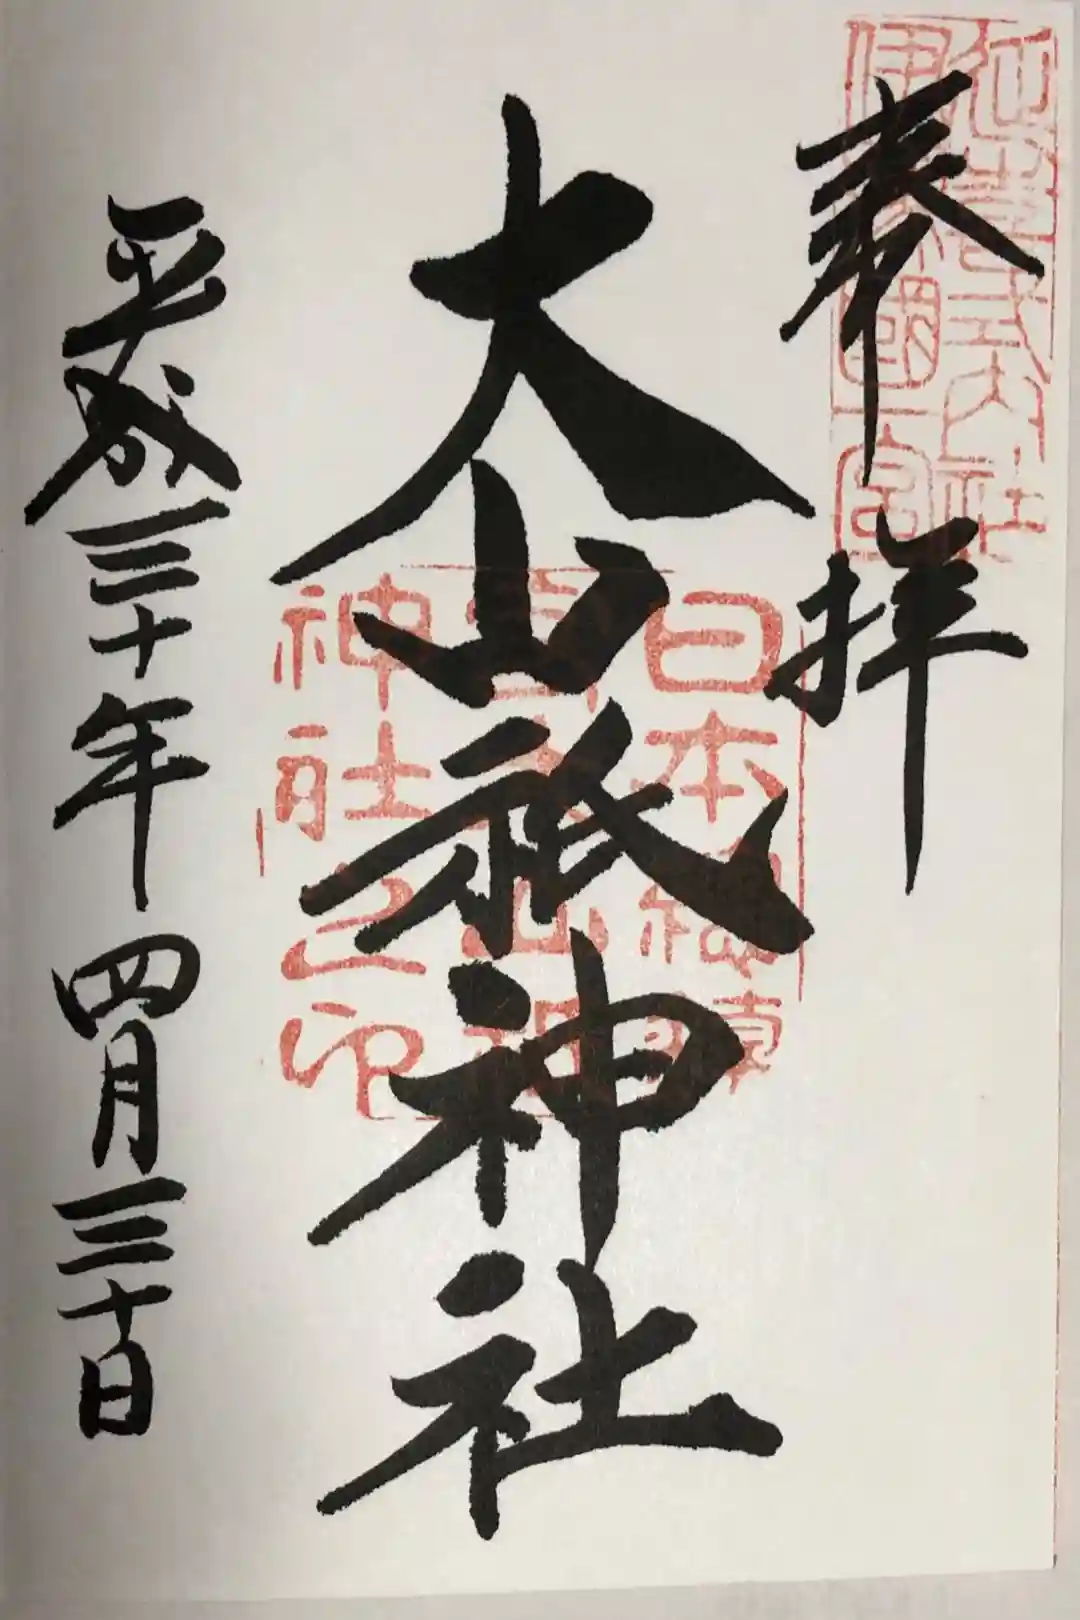 奉拝
延喜式内社
伊豫國一宮
大山祇神社
日本総鎮
神社之印
平成三十年四月三十日